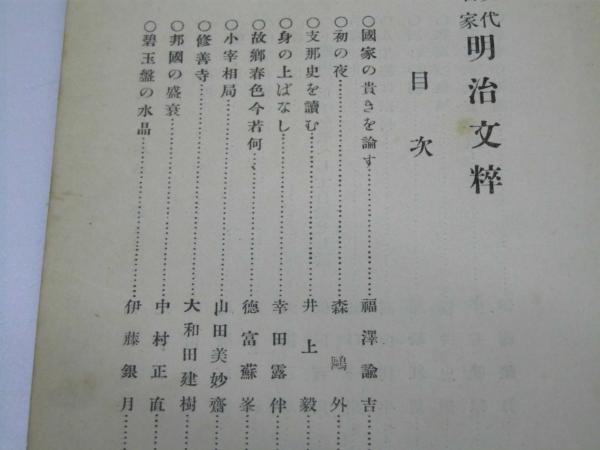 代
家
明治文粹
目次
○國家の貴きを論ず……福澤諭吉……
○初の夜……森鷗外……
○支那史を讀む……井上毅……
○身の上ばなし……幸田露伴……
○故鄉春色今若何……德富蘇峯……
○小宰相局……山田美妙齋……
○修善寺……大和田建樹……
○邦國の盛衰……中村正直……
○碧玉盤の水晶……伊藤銀月……